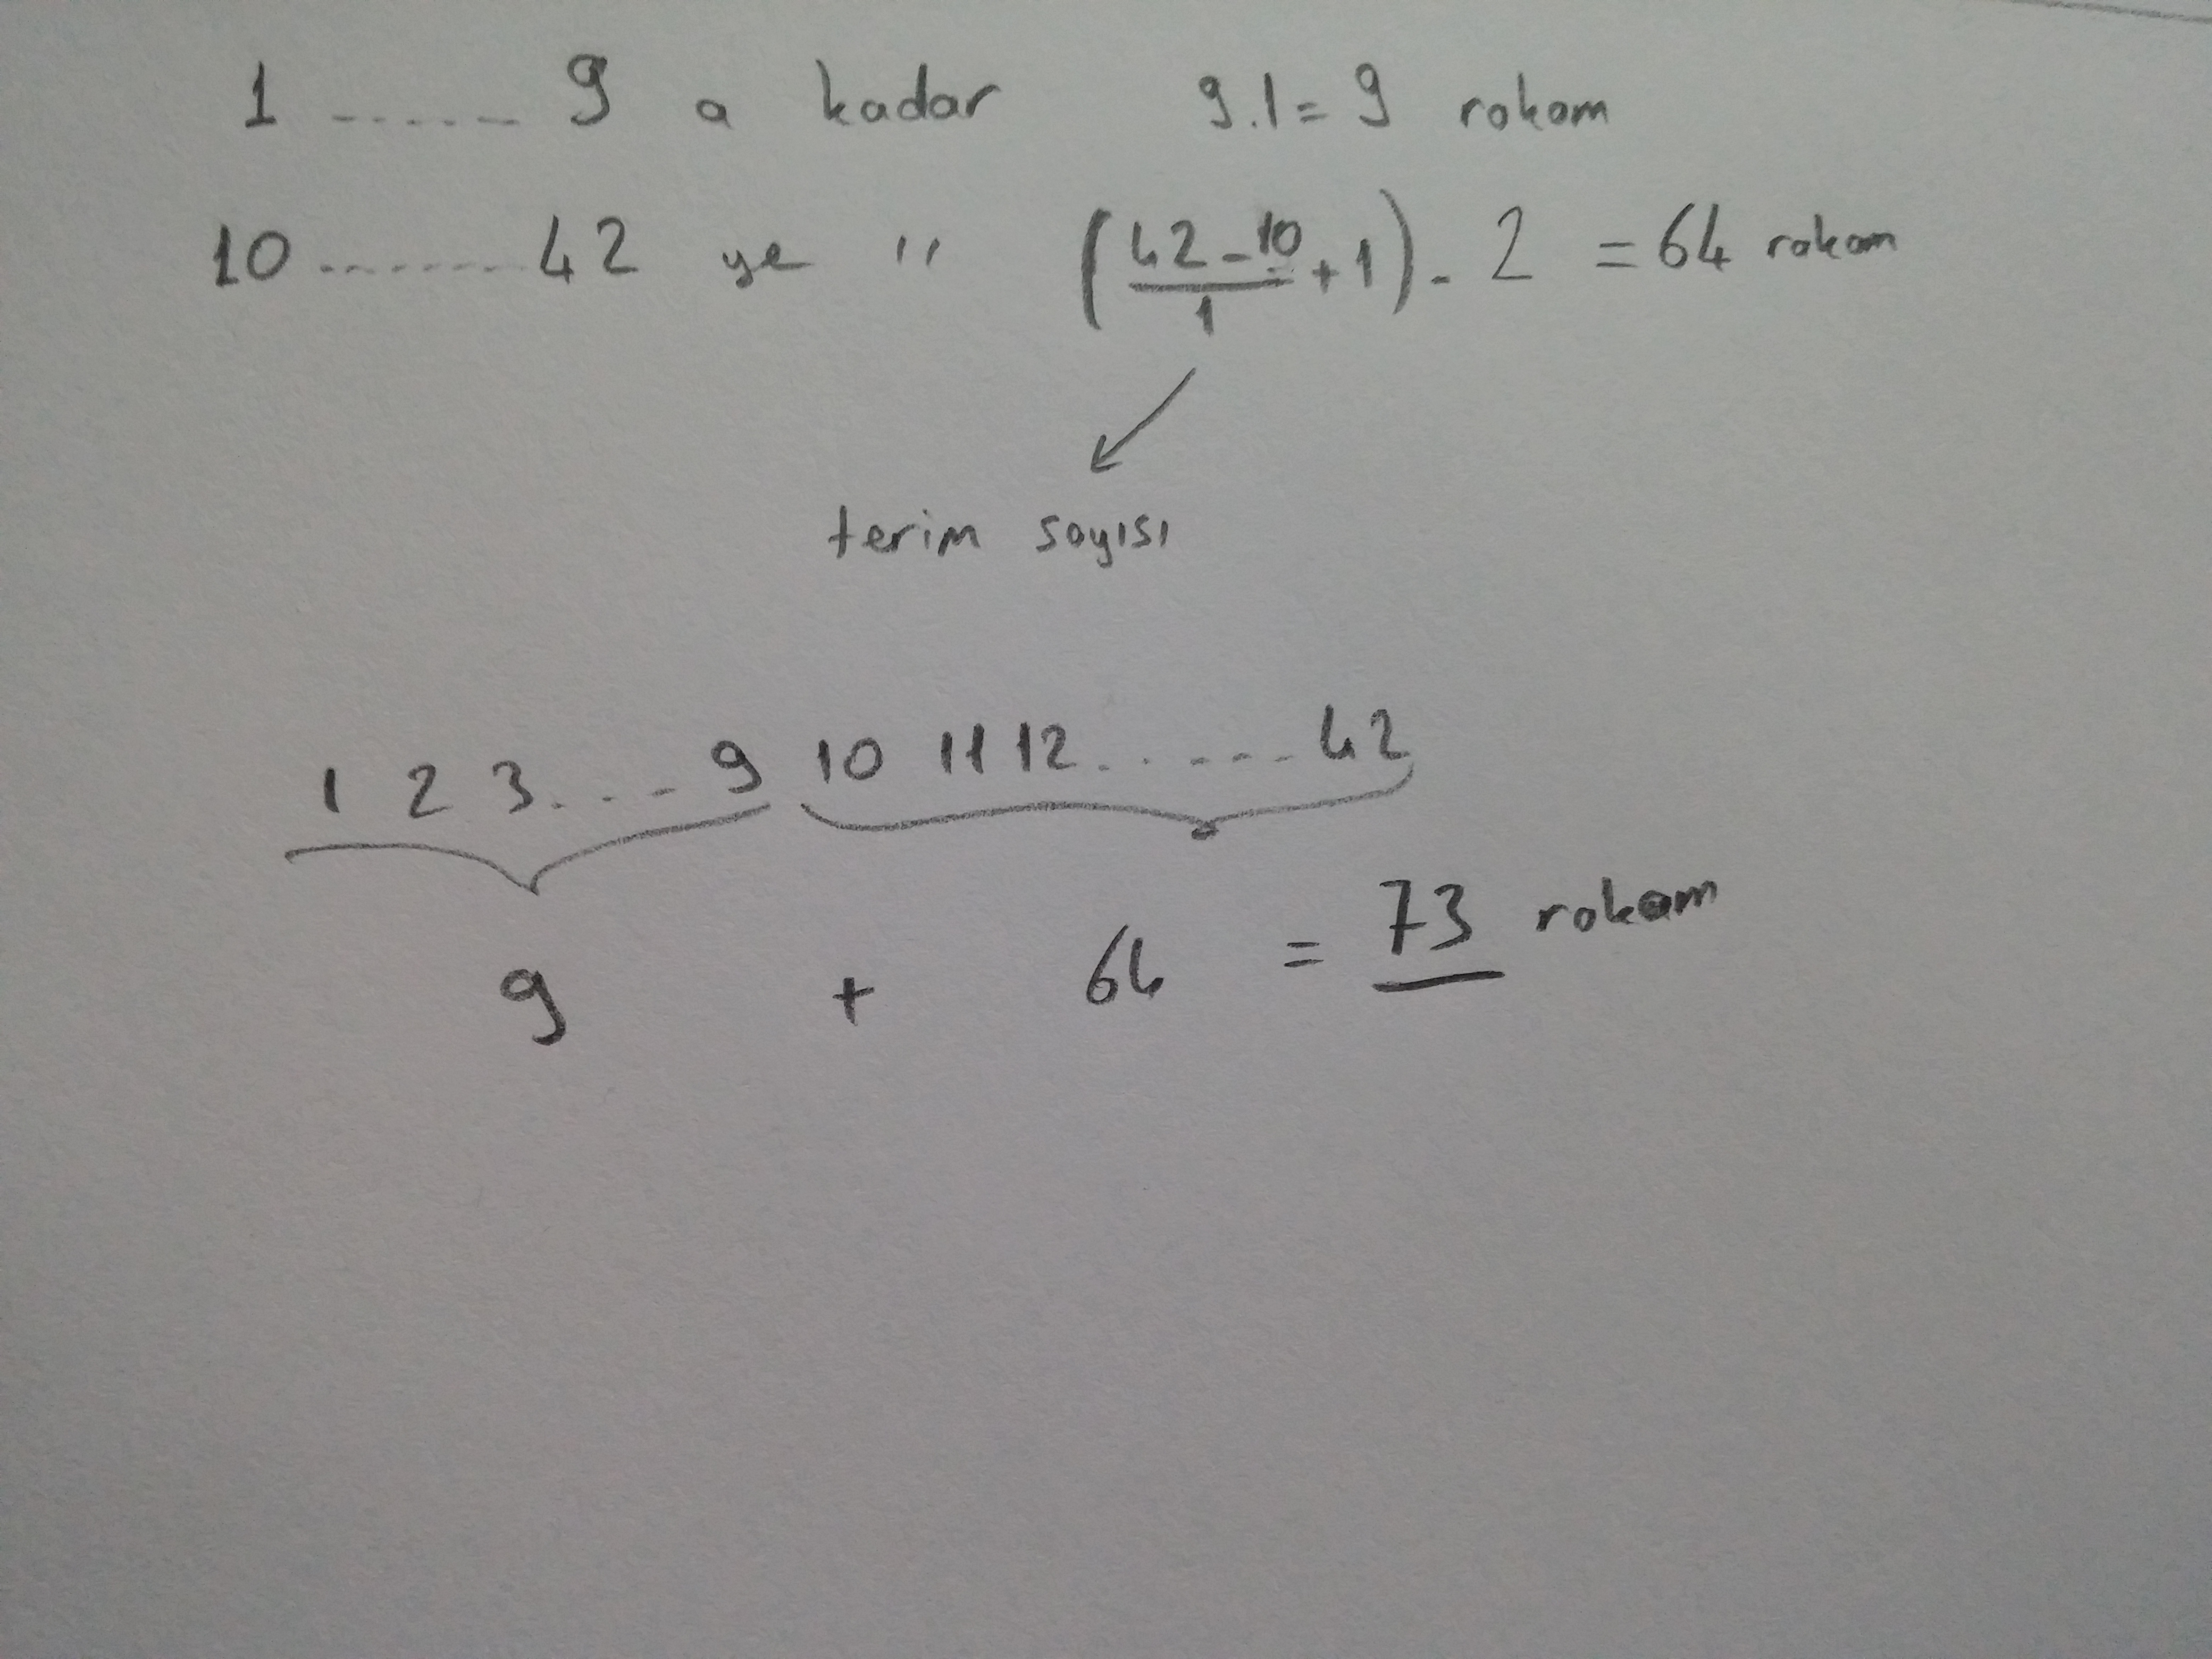 1 ...... 9 a kadar 9.1= 9 rakam
10 ....... 42 ye " (42-10/1 + 1). 2 = 64 rakam
terim sayısı
1 2 3.... 9 10 11 12....... 42
9 + 64 = 73 rakam